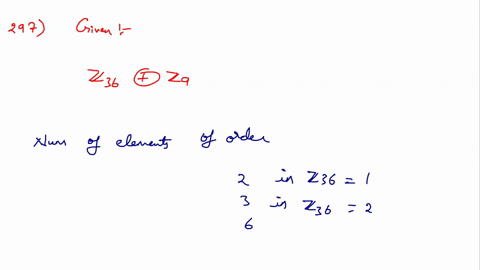 297) Given :-
ℤ36 ⊕ ℤ9
Num of elements of order
2 in ℤ36 = 1
3 in ℤ36 = 2
6